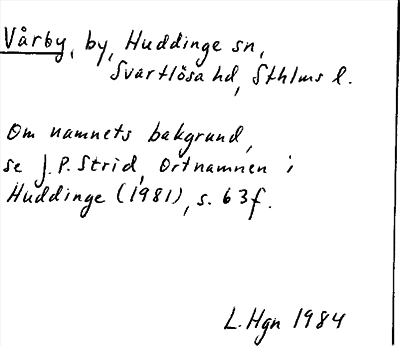 Vårby, by, Huddinge sn,
Svartlösa hd, Sthlms l.
Om namnets bakgrund,
se J.P. Strid, Ortnamnen i
Huddinge (1981), s. 63f.
L. Hgn 1984